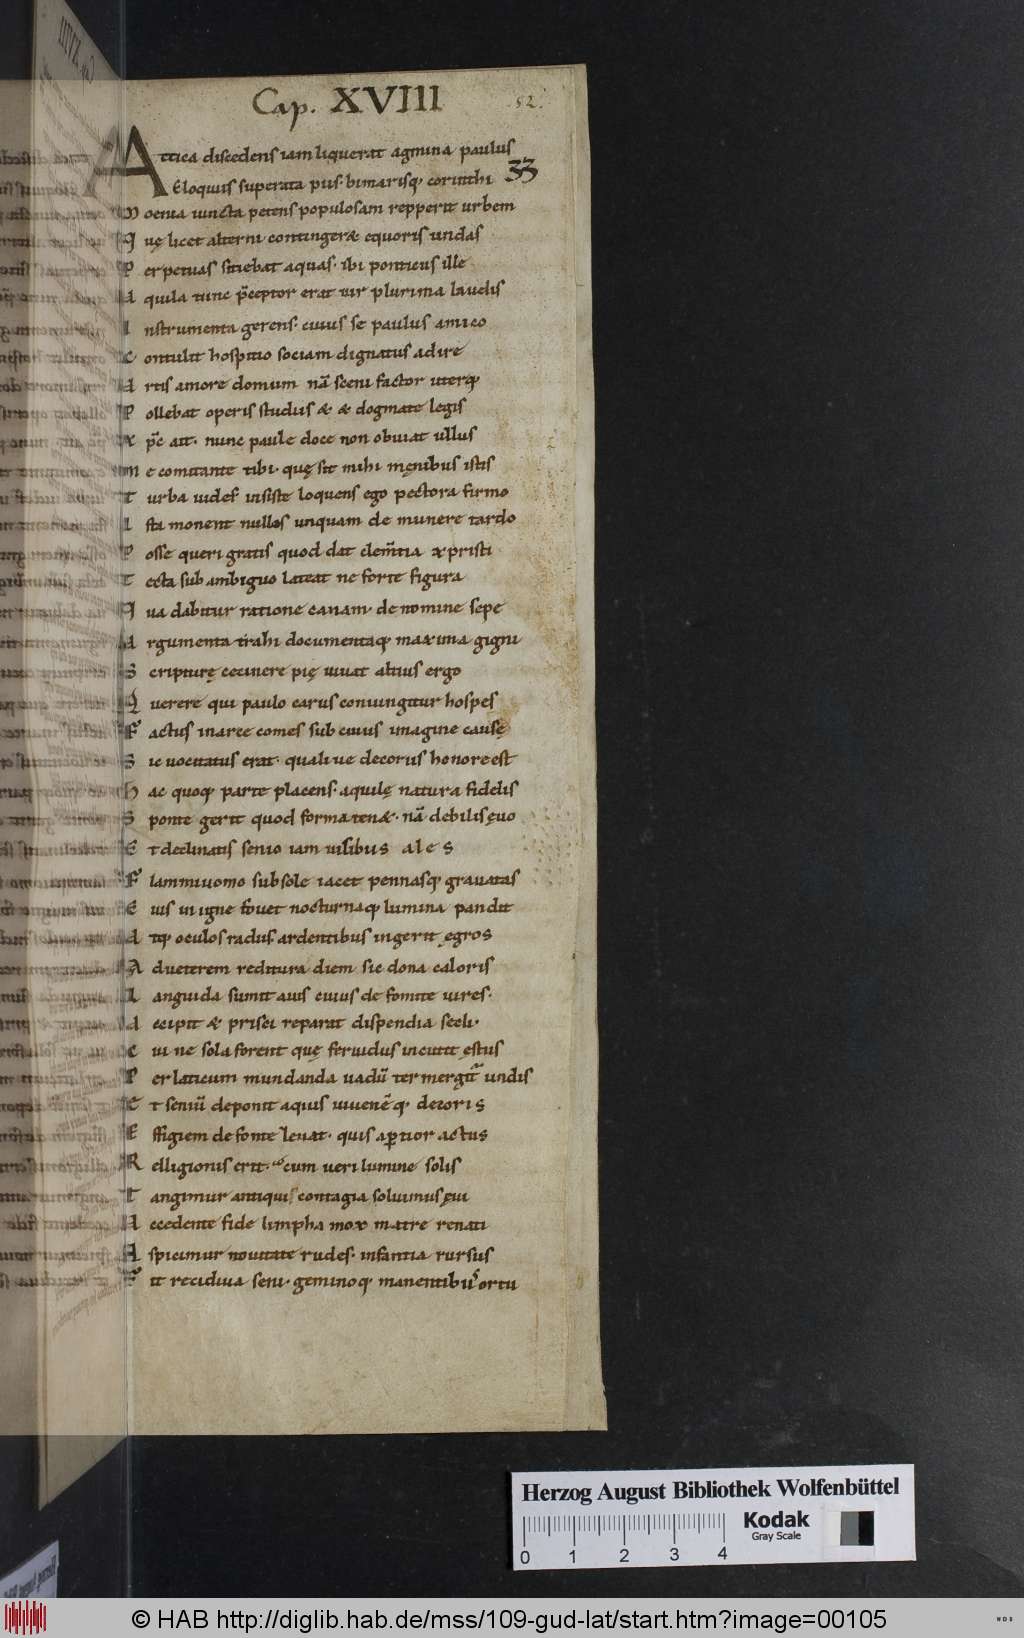 Cap. XVIII
52.
Attica discedens iam liquerat agmina paulus
33
Eloquiis superata piis. bimarisq; corinthi
Moenia iuncta petens populosam repperit urbem
Quę licet alterni contingeræ equoris undas
Perpetuas sitiebat aquas. ibi ponticus ille
Aquila tunc p̄ceptor erat uir plurima laudis
Instrumenta gerens. cuius se paulus amico
Contulit hospitio sociam dignatus adire
Artis amore domum nā sceni factor uterq;
Pollebat operis studiis & & dogmate legis
Xp̄c ait. nunc paule doce non obuiat ullus
Me comitante tibi. quę sit mihi męnibus istis
Turba uides insiste loquens ego pectora firmo
Ista monent nullos unquam de munere tardo
Posse queri gratis quod dat clem̄tia xpristi
Tecta sub ambiguo lateat ne forte figura
Qua dabitur ratione canam. de nomine sepe
Argumenta trahi documentaq; maxima gigni
Scripturę cecinere pię uiuat altius ergo
Querere qui paulo carus coniungitur hospes
Factus in arce comes sub cuius imagine causę
Sic uocitatus erat. qualiue decorus honore est
Hac quoq; parte placens. aquilę natura fidelis
Sponte gerit quod forma tenæ. nā debilis ęuo
Et declinatis senio iam uisibus ales
Flammiuomo sub sole iacet pennasq; grauatas
Eius in igne fouet nocturnaq; lumina pandit
Atq; oculos radiis ardentibus ingerit ęgros
Ad ueterem reditura diem sic dona caloris
Languida sumit auis cuius de fomite uires.
Accipit & prisci reparat dispendia secli.
Cui ne sola forent quę feruidus incutit ęstus
Per laticum mundanda uadū ter mergit᷑ undis
Et seniū deponit aquis iuuenēq; decoris
Effigiem de fonte leuat. quis aptior actus
Relligionis erit. cum ueri lumine solis
Tangimur antiqui contagia soluimus ęui
Accedente fide limpha mox matre renati
Aspicimur nouitate rudes. infantia rursus
Fit recidiua seni. geminoq; manentibus ortu
Herzog August Bibliothek Wolfenbüttel
Kodak
Gray Scale
0 1 2 3 4
© HAB http://diglib.hab.de/mss/109-gud-lat/start.htm?image=00105